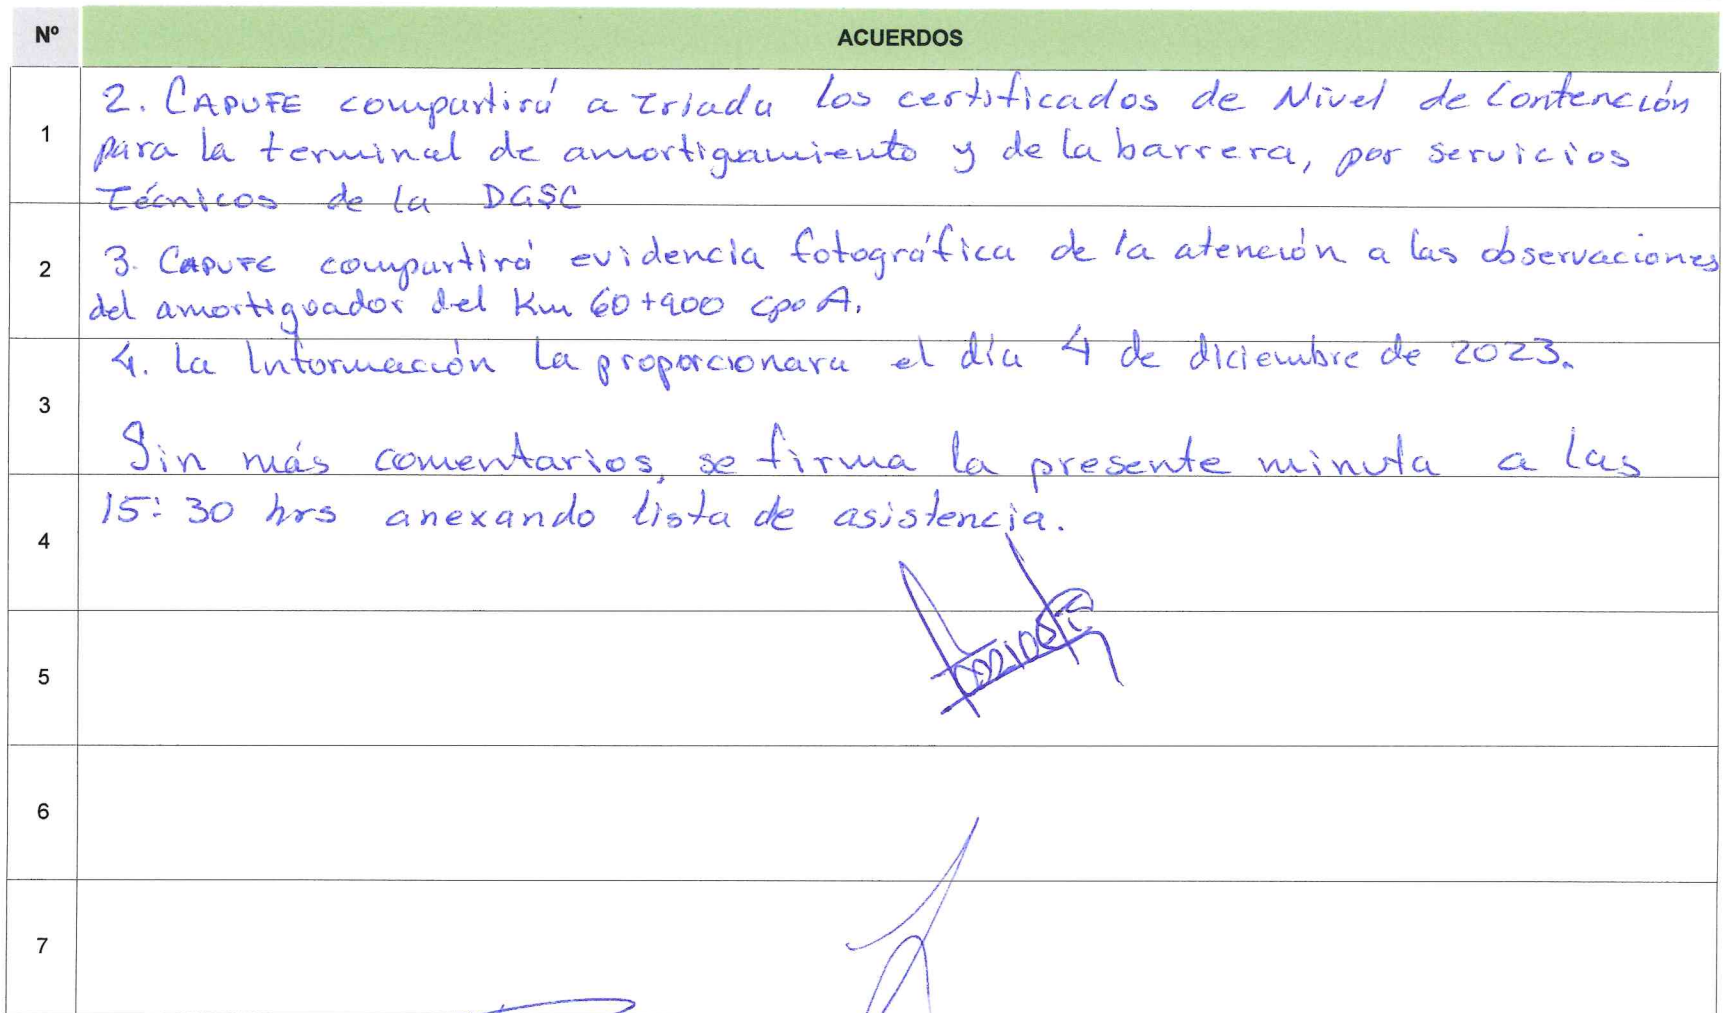 Nº ACUERDOS
1
2. CAPUFE compartirá a Triada los certificados de Nivel de Contención
para la terminal de amortigamiento y de la barrera, por servicios
Técnicos de la DGSC
2
3. CAPUFE compartirá evidencia fotográfica de la atención a las observaciones
del amortiguador del Km 60+900 cpo A.
3
4. La Información la proporcionara el día 4 de diciembre de 2023.
Sin más comentarios, se firma la presente minuta a las
4
15:30 hrs anexando lista de asistencia.
5
6
7